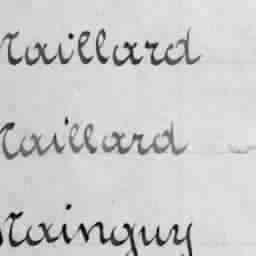 Maillard
Maillard
Mainguy